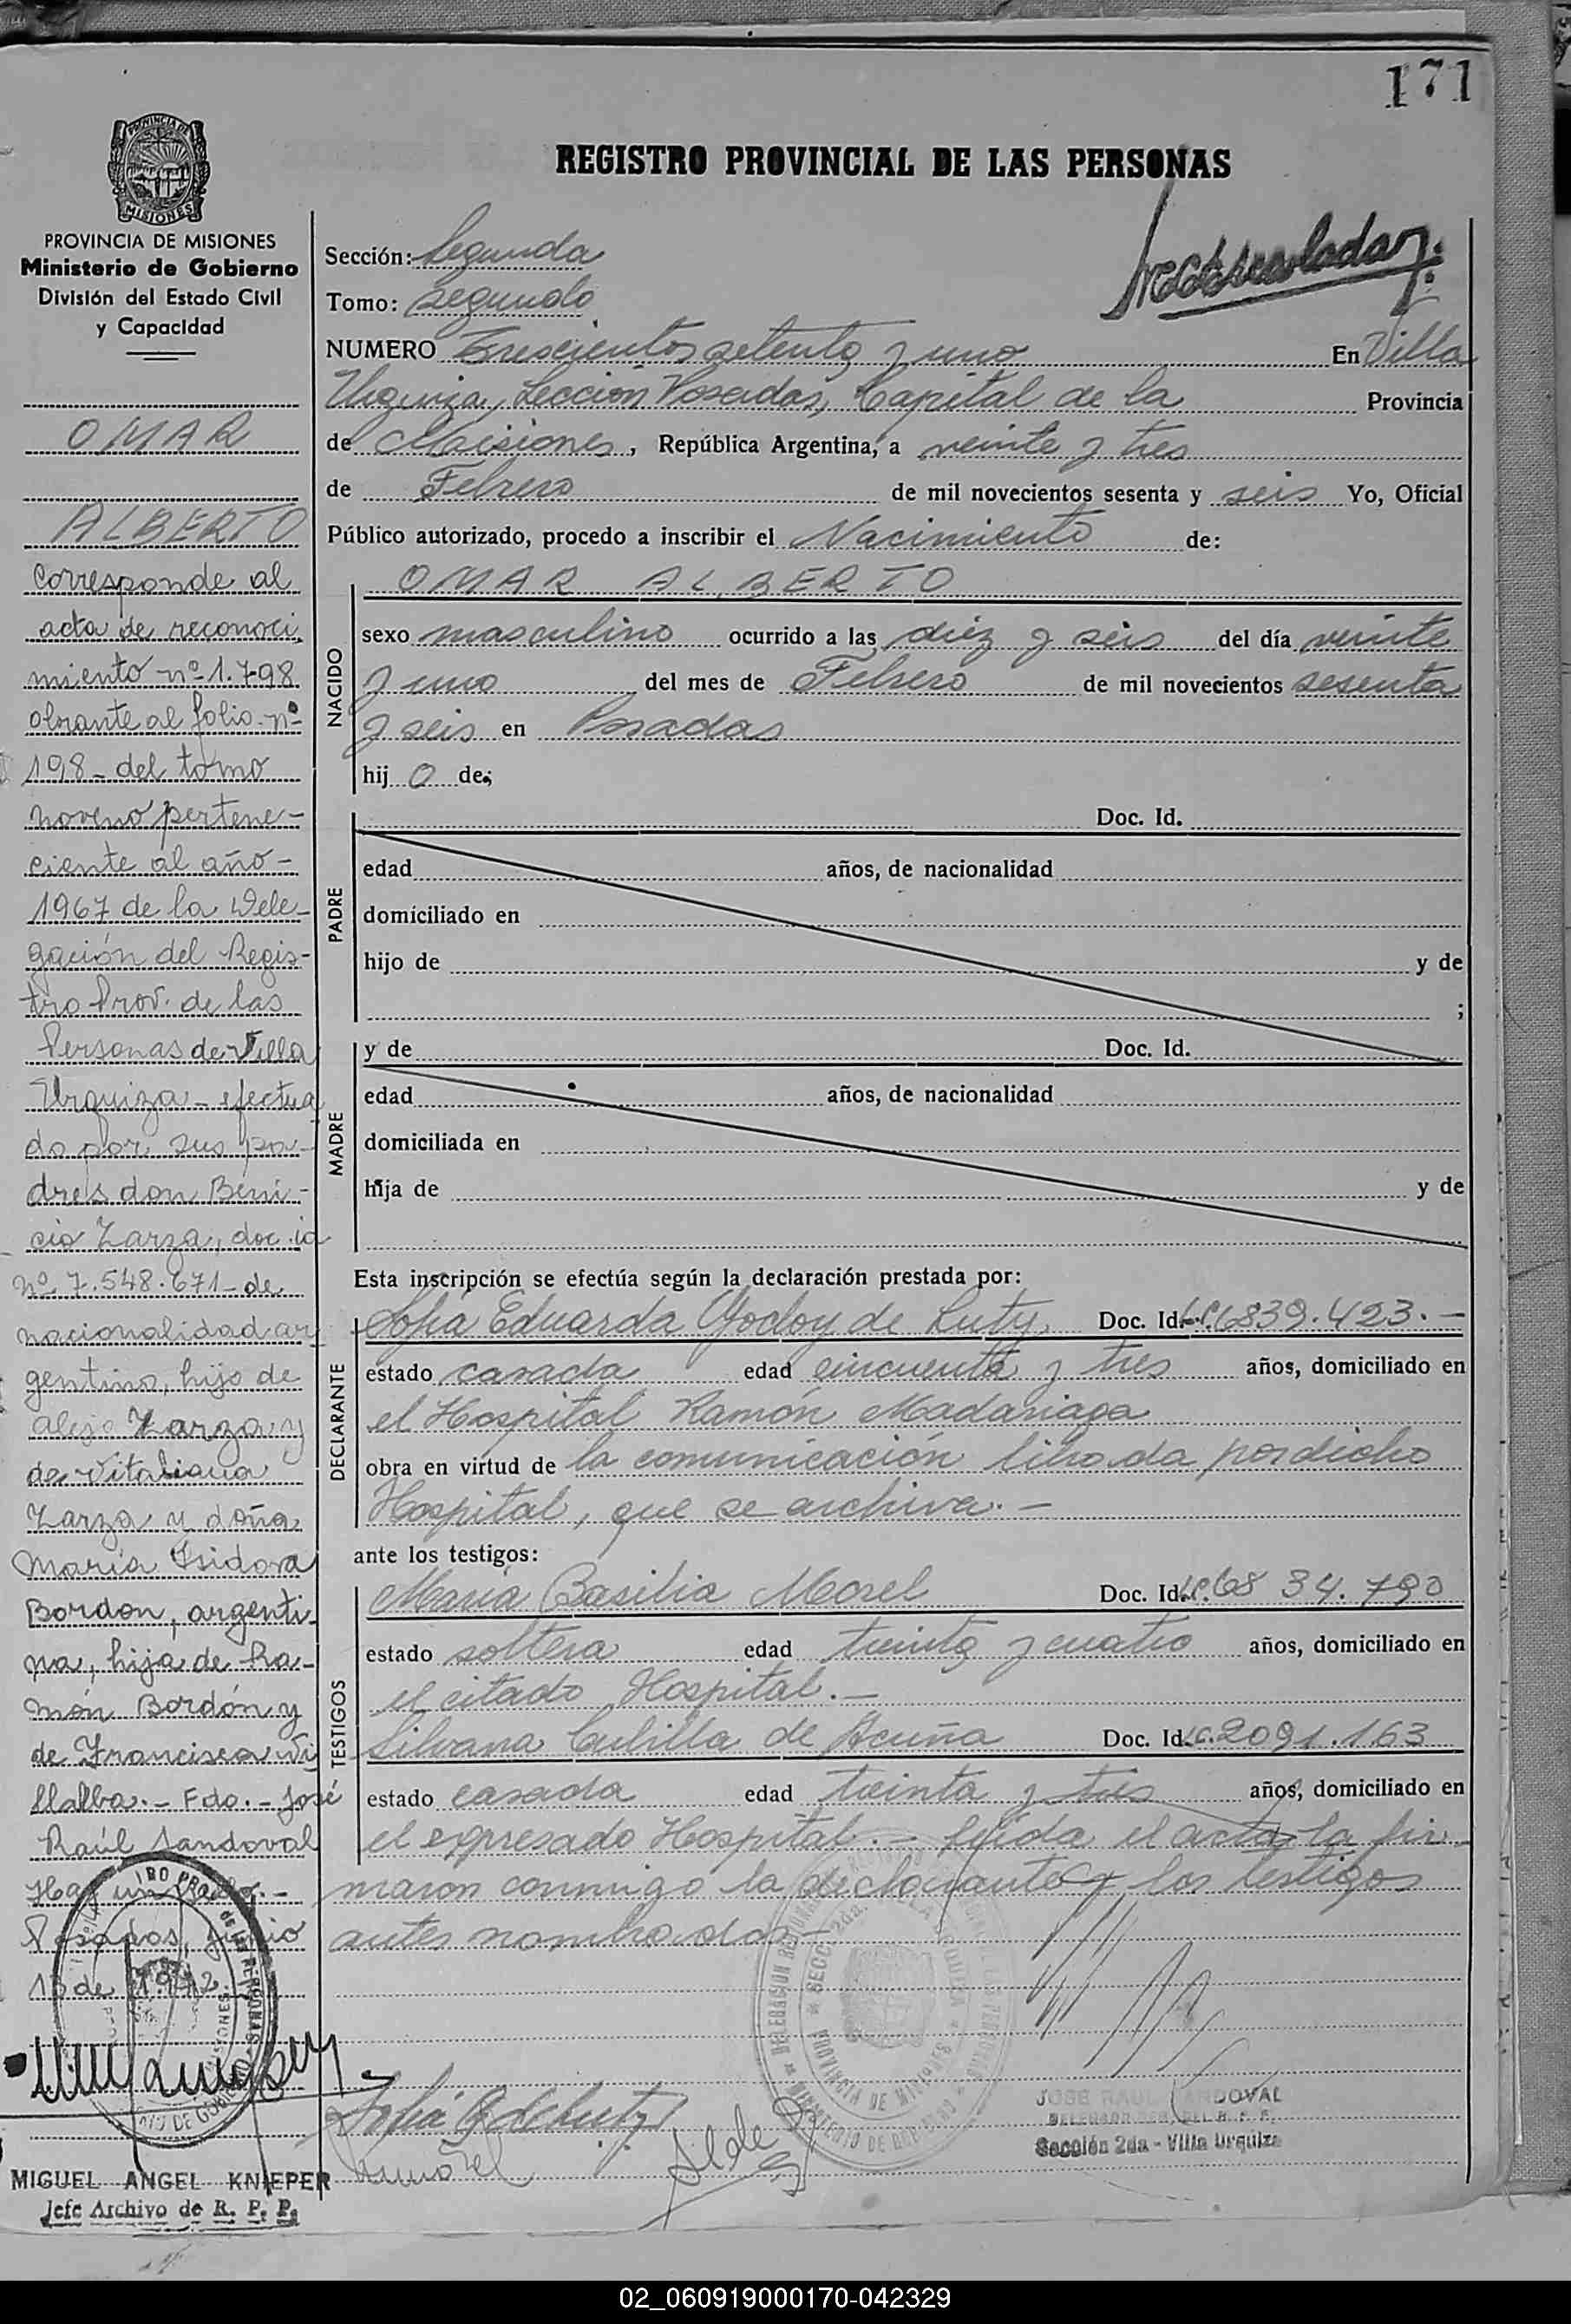 171
REGISTRO PROVINCIAL DE LAS PERSONAS
PROVINCIA DE MISIONES
Ministerio de Gobierno
División del Estado Civil
y Capacidad
OMAR
ALBERTO
Corresponde al
acta de reconoci
miento nº 1.798
obrante al folio nº
198 - del tomo
noveno pertene-
ciente al año -
1967 de la Dele-
gación del Regis-
tro Prov. de las
Personas de Villa
Urquiza - efectua
do por sus pa-
dres don Beni-
cio Zarza, doc. id
nº 7.548.671 - de
nacionalidad ar
gentino, hijo de
Alejo Zarza y
de Vitaliana
Zarza y doña
María Isidora
Bordon, argenti-
na, hija de Ra-
món Bordón y
de Francisca Vi
llalba. - Fdo. - José
Raúl Sandoval
Hay un sello. -
Posadas,
13 de
MIGUEL ANGEL KNIEPER
Jefe Archivo de R. P. P.
Sección: Segunda
Tomo: segundo
NUMERO Trescientos setenta y uno En Villa
Urquiza, Sección Posadas, Capital de la Provincia
de Misiones, República Argentina, a veinte y tres
de Febrero de mil novecientos sesenta y seis Yo, Oficial
Público autorizado, procedo a inscribir el Nacimiento de:
OMAR ALBERTO
NACIDO
sexo masculino ocurrido a las diez y seis del día veinte
y uno del mes de Febrero de mil novecientos sesenta
y seis en Posadas
hij o de;
PADRE
Doc. Id.
edad años, de nacionalidad
domiciliado en
hijo de y de
;
MADRE
y de Doc. Id.
edad años, de nacionalidad
domiciliada en
hija de y de
Esta inscripción se efectúa según la declaración prestada por:
DECLARANTE
Sofía Eduarda Godoy de Luty Doc. Id. L.C. 6839.423. -
estado casada edad cincuenta y tres años, domiciliado en
el Hospital Ramón Madariaga
obra en virtud de la comunicación librada por dicho
Hospital, que se archiva. -
ante los testigos:
TESTIGOS
María Basilia Morel Doc. Id. L.C. 68 34.790
estado soltera edad treinta y cuatro años, domiciliado en
el citado Hospital. -
Silvana Cubilla de Acuña Doc. Id. L.C. 2091.163
estado casada edad treinta y tres años, domiciliado en
el expresado Hospital. - Leída el acta la fir
maron conmigo la declarante y los testigos
antes nombrados -
JOSE RAUL SANDOVAL
Sección 2da - Villa Urquiza
02_060919000170-042329